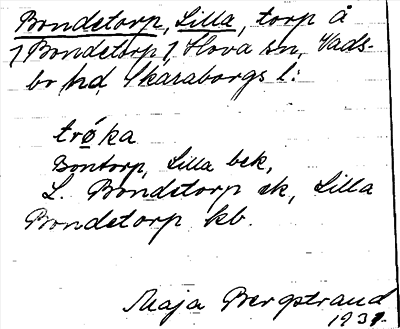 Bondetorp, Lilla, torp å
1 Bondetorp 1, Hova sn, Vads-
bo hd Skaraborgs l:
trǿka
Bontorp, Lilla bek,
L. Bondetorp ek, Lilla
Bondetorp kb.
Maja Bergstrand
1931.